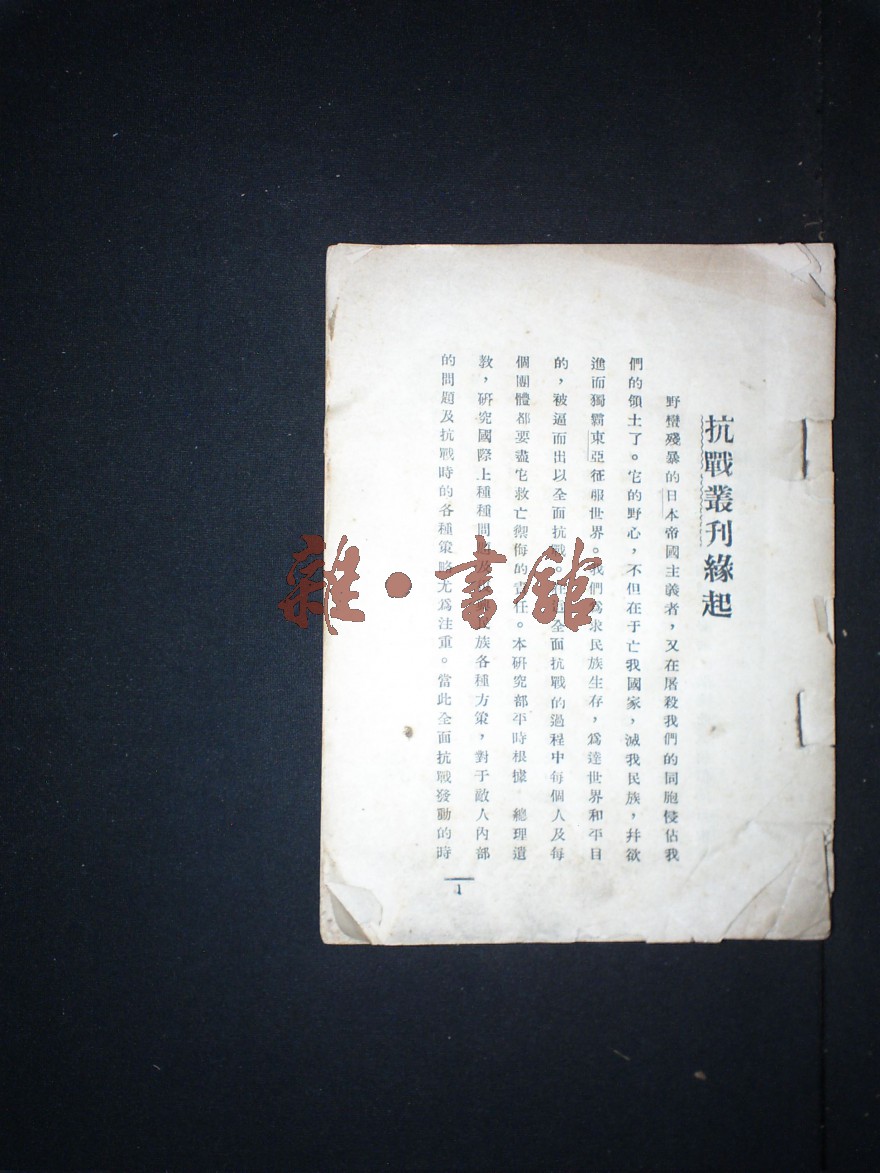 抗戰叢刊緣起
野蠻殘暴的日本帝國主義者，又在屠殺我們的同胞侵佔我
們的領土了。它的野心，不但在于亡我國家，滅我民族，幷欲
進而獨霸東亞征服世界。我們爲求民族生存，爲達世界和平目
的，被逼而出以全面抗戰。全面抗戰的過程中每個人及每
個團體都要盡它救亡禦侮的責任。本研究部平時根據　總理遺
教，研究國際上種種問題及民族各種方策，對于敵人內部
的問題及抗戰時的各種策略尤爲注重。當此全面抗戰發動的時
1
雜·書館